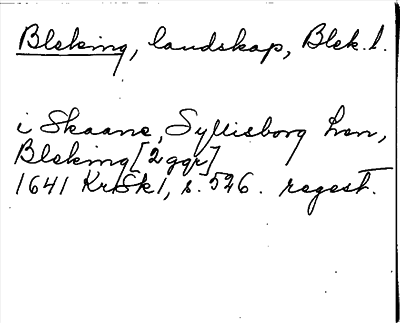 Bleking, landskap, Blek. l.
i Skaane, Syllisborg Len,
Bleking [2 ggr]
1641 KrSk 1, s. 526. regest.